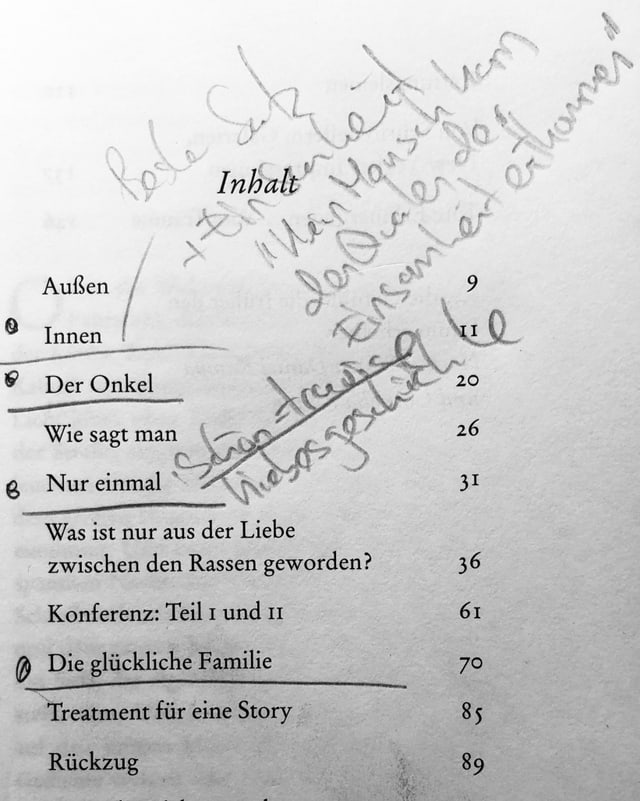 Beste Satz
"Kein Mensch kann
den Qualen der
Einsamkeit entkommen"
schön-traurige
Liebesgeschichte
Inhalt
Außen 9
Innen 11
Der Onkel 20
Wie sagt man 26
Nur einmal 31
Was ist nur aus der Liebe
zwischen den Rassen geworden? 36
Konferenz: Teil I und II 61
Die glückliche Familie 70
Treatment für eine Story 85
Rückzug 89